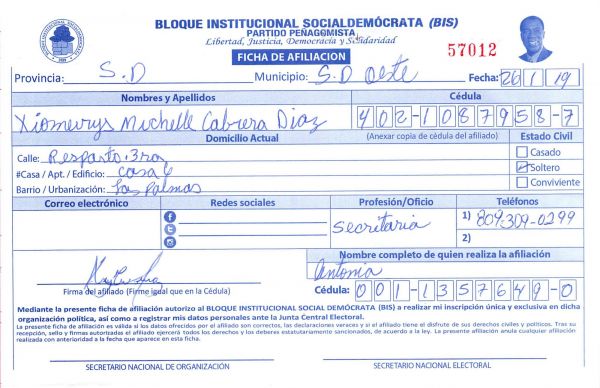 BLOQUE INSTITUCIONAL SOCIALDEMÓCRATA (BIS)
PARTIDO PEÑAGOMISTA
Libertad, Justicia, Democracia y Solidaridad
FICHA DE AFILIACION
57012
Provincia: S.D Municipio: S.D Oeste Fecha: 26/1/19
Nombres y Apellidos Cédula
Xiomeurys Michelle Cabrera Diaz 402-1087958-7
Domicilio Actual (Anexar copia de cédula del afiliado) Estado Civil
Calle: Resparto 3ra Casado
#Casa / Apt. / Edificio: casa 6 Soltero
Barrio / Urbanización: Las Palmas Conviviente
Correo electrónico Redes sociales Profesión/Oficio Teléfonos
Secretaria 1) 809-309-0299
2)
Nombre completo de quien realiza la afiliación
Antonia
Firma del afiliado (Firme igual que en la Cédula) Cédula: 001-1357649-0
Mediante la presente ficha de afiliación autorizo al BLOQUE INSTITUCIONAL SOCIAL DEMÓCRATA (BIS) a realizar mi inscripción única y exclusiva en dicha
organización política, así como a registrar mis datos personales ante la Junta Central Electoral.
La presente ficha de afiliación es válida si los datos ofrecidos por el afiliado son correctos, las declaraciones veraces y si el afiliado tiene el disfrute de sus derechos civiles y políticos. Tras su
recepción, sello y firmas autorizadas el afiliado ejercerá todos los derechos y los deberes estatutariamente sancionados, de acuerdo a la ley. La presente afiliación anula cualquier afiliación
realizada con anterioridad a la fecha que aparece en esta ficha.
SECRETARIO NACIONAL DE ORGANIZACIÓN SECRETARIO NACIONAL ELECTORAL